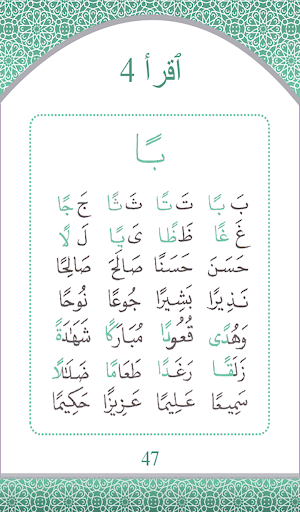 ٱقرأ 4
بًا
بَ بًا تَ تًا ثَ ثًا جَ جًا
غَ غًا ظَ ظًا يَ يًا لَ لًا
حَسَنَ حَسَنًا صَالِحَ صَالِحًا
نَذِيرًا بَشِيرًا جُوعًا نُوحًا
وَهُدًى قُعُودًا مُبَارَكًا شَهَٰدَةً
زَلَقًا رَغَدًا طَعَامًا ضَلَٰلًا
سَمِيعًا عَلِيمًا عَزِيزًا حَكِيمًا
47